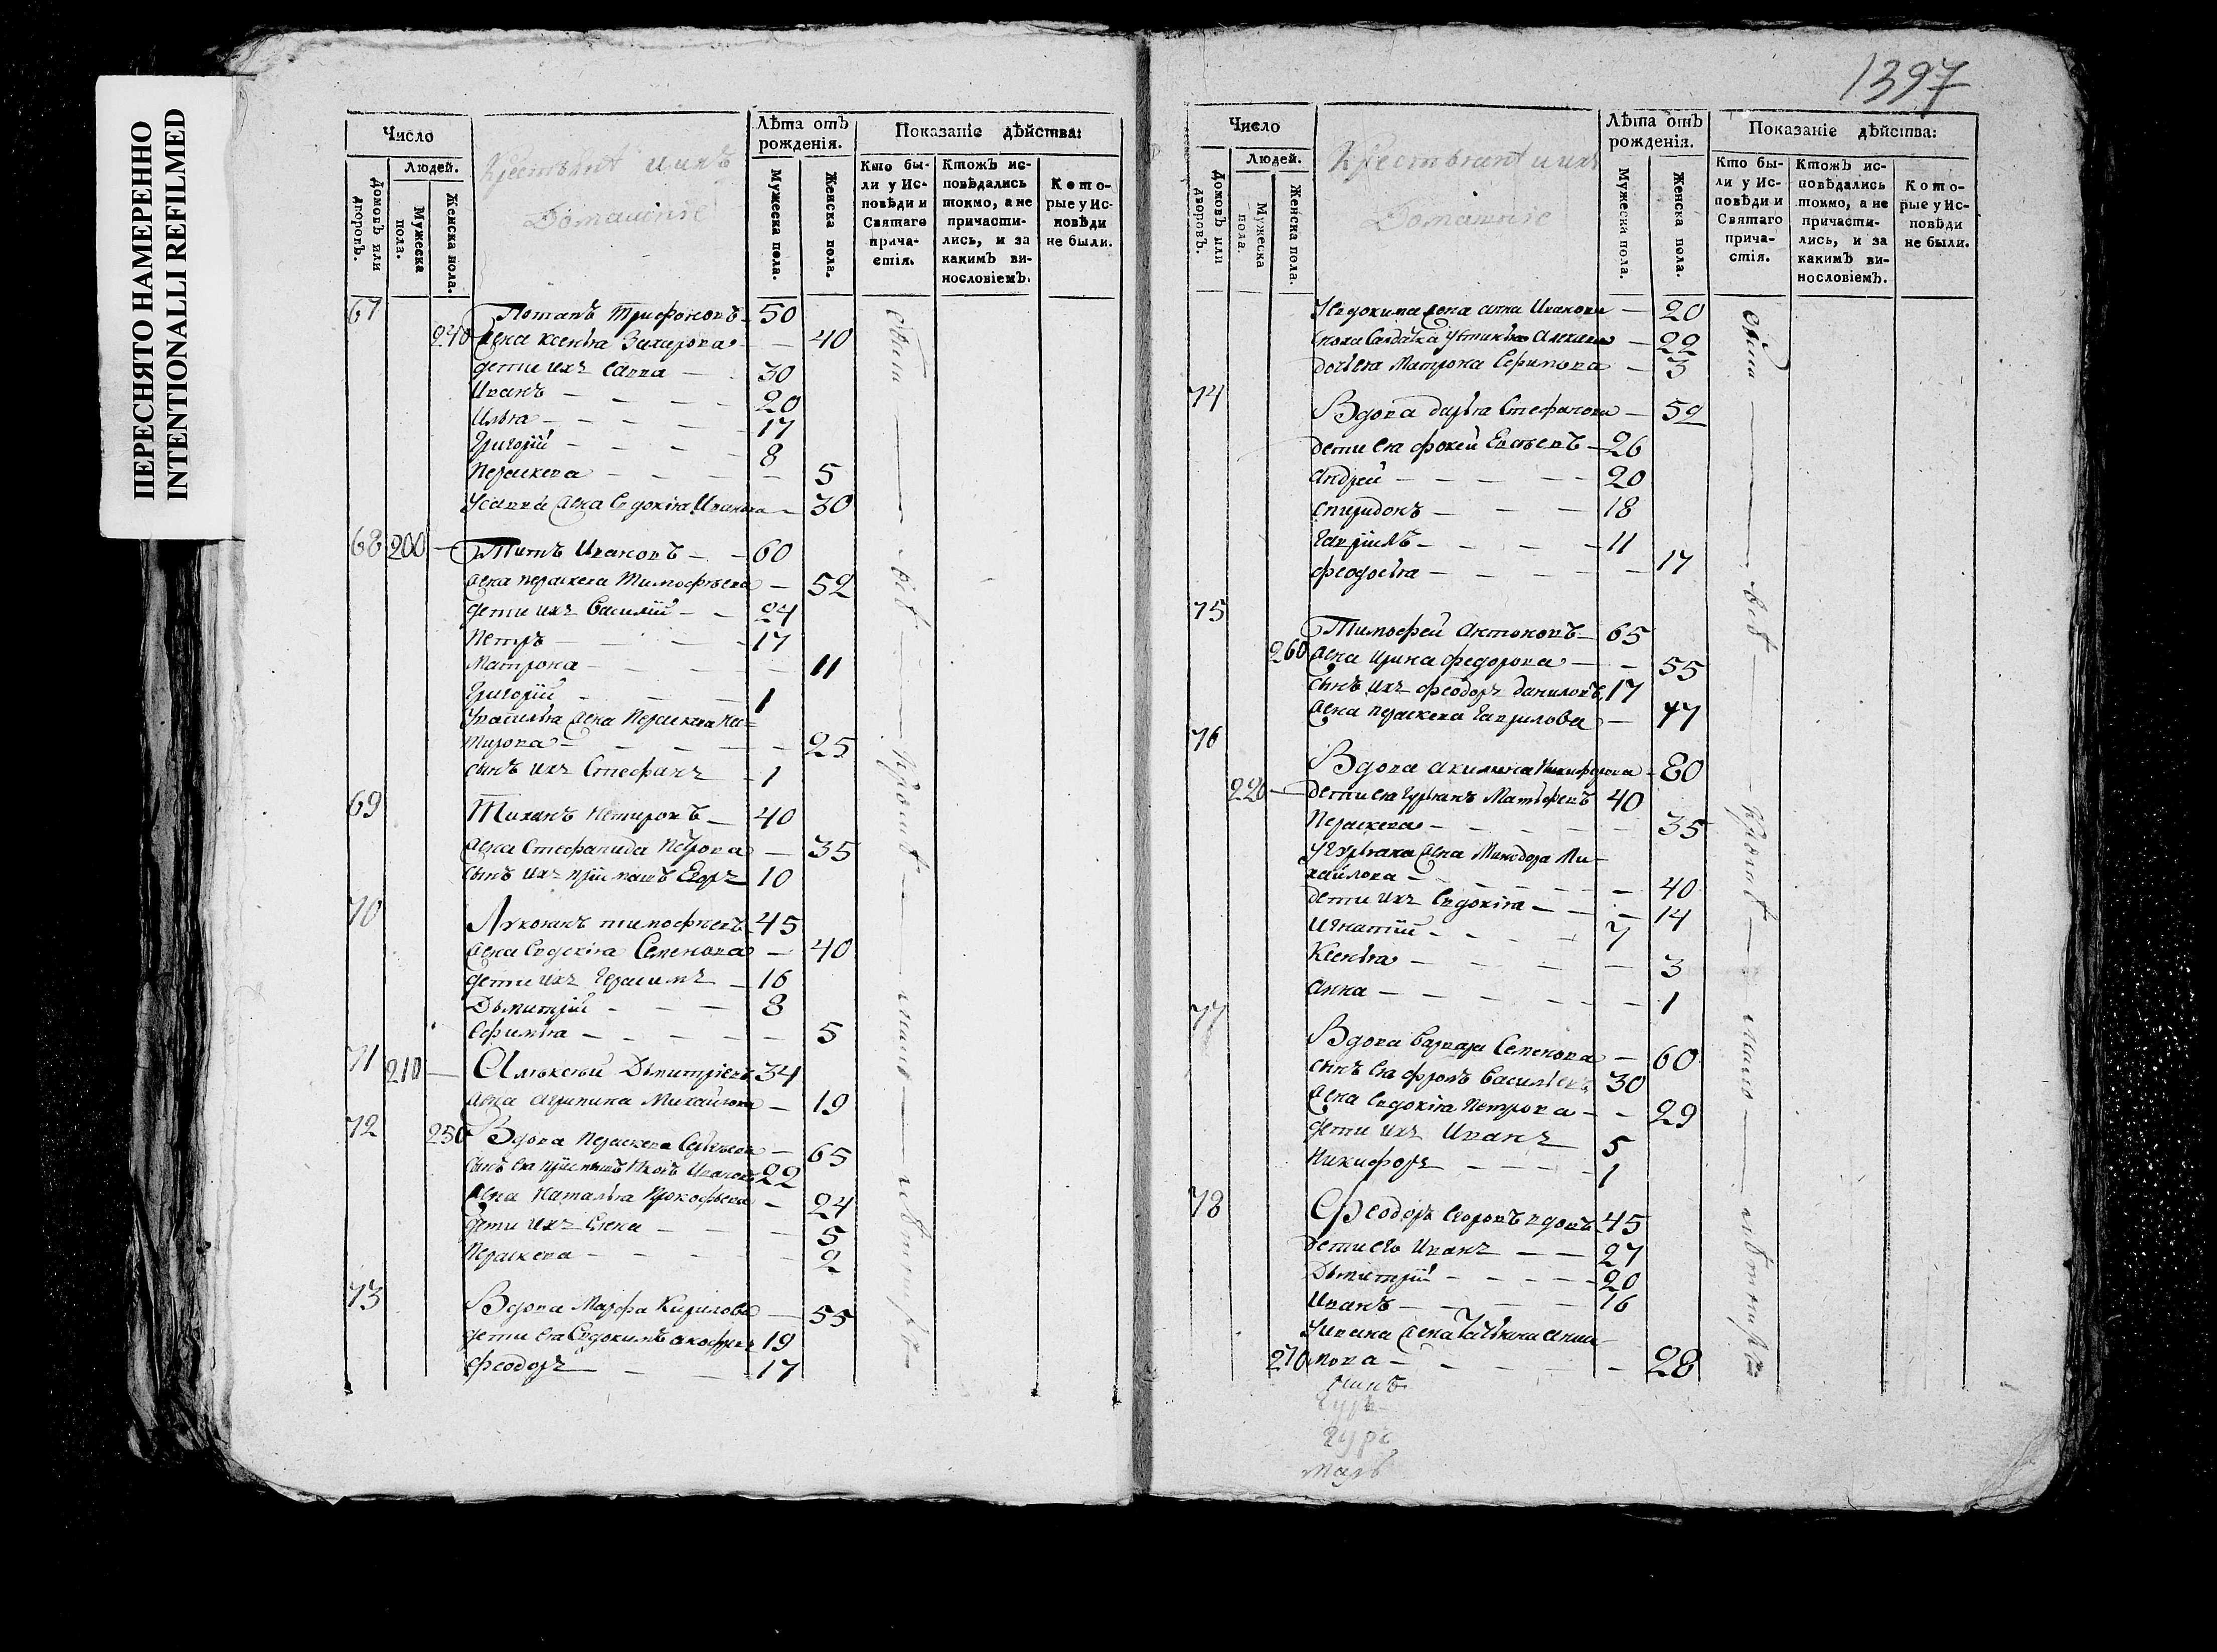 ПЕРЕСНЯТО НАМЕРЕННО
INTENTIONALLI REFILMED
Число
Людей.
Домовъ или дворовъ.
Мужеска пола.
Женска пола.
Крестьянѣ и ихъ
Домашніе
Лѣта отъ рожденія.
Мужеска пола.
Женска пола.
Показаніе дѣйства:
Кто были у Исповѣди и Святаго причастія.
Ктожъ исповѣдались токмо, а не причастились, и за какимъ винословіемъ.
Которые у Исповѣди не были.
67 Потапъ Трифоновъ 50
240 жена Ксенья Захарова 40
дети ихъ Савва 30
Иванъ 20
Илья 17
Григорій 8
Параскева 5
У Саввы жена Евдокія Иванова 30
68 200 Титъ Ивановъ 60
жена Параскева Тимофѣева 52
дети ихъ Василій 24
Петръ 17
Матрона 11
Григорій 1
У Василья жена Параскева
25
сынъ ихъ Стефанъ 1
69 Тихонъ 40
жена Стефанида Петрова 35
сынъ ихъ пріимышъ Егоръ 10
70 Лукоянъ Тимофеевъ 45
жена Евдокія Семенова 40
дети ихъ Герасимъ 16
Дьмитрій 8
Ефимья 5
71 210 Алексѣй Дьмитріевъ 34
жена Агрипина Михайлова 19
72 250 Вдова Параскева 65
сынъ ея пріимышъ Ивановъ 22
жена Наталья Прокофьева 24
дети ихъ Елена 5
Параскева 2
73 Вдова Марфа Кирилова 55
дети ея Евдокимъ 19
Феодоръ 17
были всѣ
1397
Число
Людей.
Домовъ или дворовъ.
Мужеска пола.
Женска пола.
Крестьянѣ и ихъ
Домашніе
Лѣта отъ рожденія.
Мужеска пола.
Женска пола.
Показаніе дѣйства:
Кто были у Исповѣди и Святаго причастія.
Ктожъ исповѣдались токмо, а не причастились, и за какимъ винословіемъ.
Которые у Исповѣди не были.
У Евдокима жена Анна Иванова 20
сноха Салдатка Устинья 22
дочь ея Матрона Ефимова 3
74 Вдова Дарья Стефанова 52
дети ея Фокей 26
Андрей 20
Спиридонъ 18
Гаврiилъ 11
Феодосья 17
75 Тимофей Антоновъ 65
260 жена Ирина Федорова 55
сынъ ихъ Феодоръ Даниловъ 17
жена Параскева Гаврилова 17
76 Вдова Акилина Никифорова 80
220 дети ея Гурьянъ 40
Параскева 35
У Гурьяна жена Минодора Ми-
хайлова 40
дети ихъ Евдокія 14
Игнатій 7
Ксенья 3
Анна 1
77 Вдова Варвара Семенова 60
сынъ ея Фролъ Васильевъ 30
жена Евдокія Петрова 29
дети ихъ Иванъ 5
Никифоръ 1
78 Феодоръ Егоровъ вдовъ 45
дети его Иванъ 27
Дьмитрій 20
Иванъ 16
У Ивана жена Татьяна
270 28
были всѣ